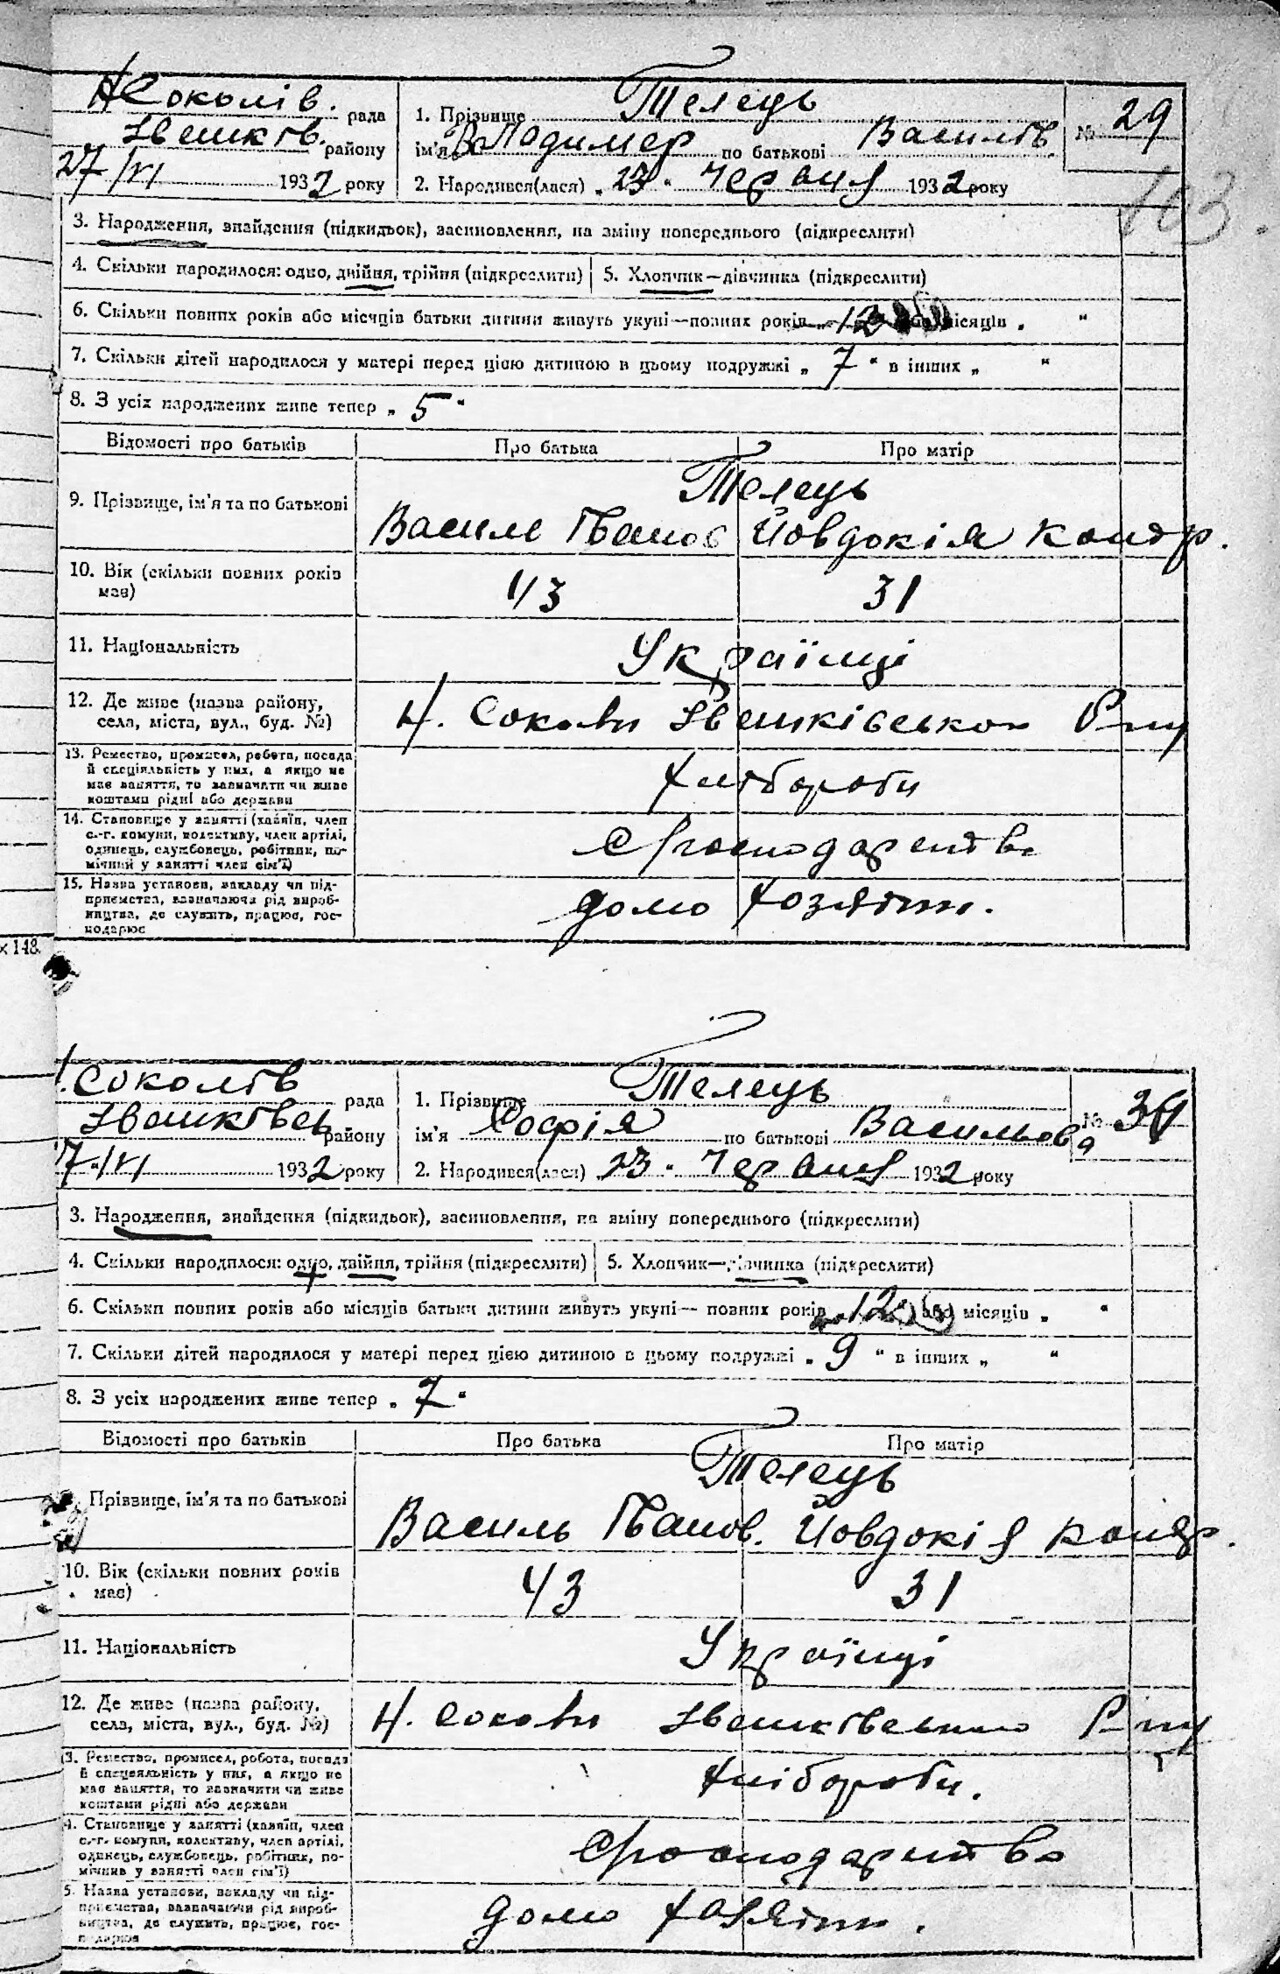 Н Соколів. рада
Звенигів. району
27/VI 1932 року
1. Прізвище Телець
ім'я Володимер по батькові Василів.
2. Народився(лася) „23" Червня 1932 року
№ 29
103.
3. Народження, знайдення (підкидьок), засиновлення, на зміну попереднього (підкреслити)
4. Скільки народилося: одно, двійня, трійня (підкреслити) 5. Хлопчик—дівчинка (підкреслити)
6. Скільки повних років або місяців батьки дитини живуть укупі—повних років „12" або місяців „ "
7. Скільки дітей народилося у матері перед цією дитиною в цьому подружжі „7" в інших „ "
8. З усіх народжених живе тепер „5"
Відомості про батьків Про батька Про матір
Телець
9. Прізвище, ім'я та по батькові Василь Іванов Йовдокія Кондр.
10. Вік (скільки повних років має) 43 31
11. Національність Українці
12. Де живе (назва району, села, міста, вул., буд. №) Н. Соколи Р-ну
13. Ремество, промисел, робота, посада й спеціяльність у них, а якщо не має заняття, то зазначити чи живе коштами рідні або держави
Хлібороби
14. Становище у занятті (хазяїн, член с.-г. комуни, колективу, член артілі, одинець, службовець, робітник, помічний у занятті член сім'ї)
15. Назва установи, закладу чи підприємства, вазначаючи рід виробництва, де служить, працює, господарює
дома
× 148.
Н. Соколів рада
району
7/VI 1932 року
1. Прізвище Телець
ім'я Софія по батькові Васильова
2. Народився(лася) „23" Червня 1932 року
№ 30
3. Народження, знайдення (підкидьок), засиновлення, на зміну попереднього (підкреслити)
4. Скільки народилося: одно, двійня, трійня (підкреслити) 5. Хлопчик—дівчинка (підкреслити)
6. Скільки повних років або місяців батьки дитини живуть укупі—повних років „12" або місяців „ "
7. Скільки дітей народилося у матері перед цією дитиною в цьому подружжі „9" в інших „ "
8. З усіх народжених живе тепер „7"
Відомості про батьків Про батька Про матір
Телець
Прізвище, ім'я та по батькові Василь Іванов. Йовдокія Кондр.
10. Вік (скільки повних років має) 43 31
11. Національність Українці
12. Де живе (назва району, села, міста, вул., буд. №) Н. Соколи Р-ну
3. Ремество, промисел, робота, посада й спеціяльність у них, а якщо не має заняття, то зазначити чи живе коштами рідні або держави
Хлібороби.
4. Становище у занятті (хазяїн, член с.-г. комуни, колективу, член артілі, одинець, службовець, робітник, помічний у занятті член сім'ї)
5. Назва установи, закладу чи підприємства, вазначаючи рід виробництва, де служить, працює, господарює
дома